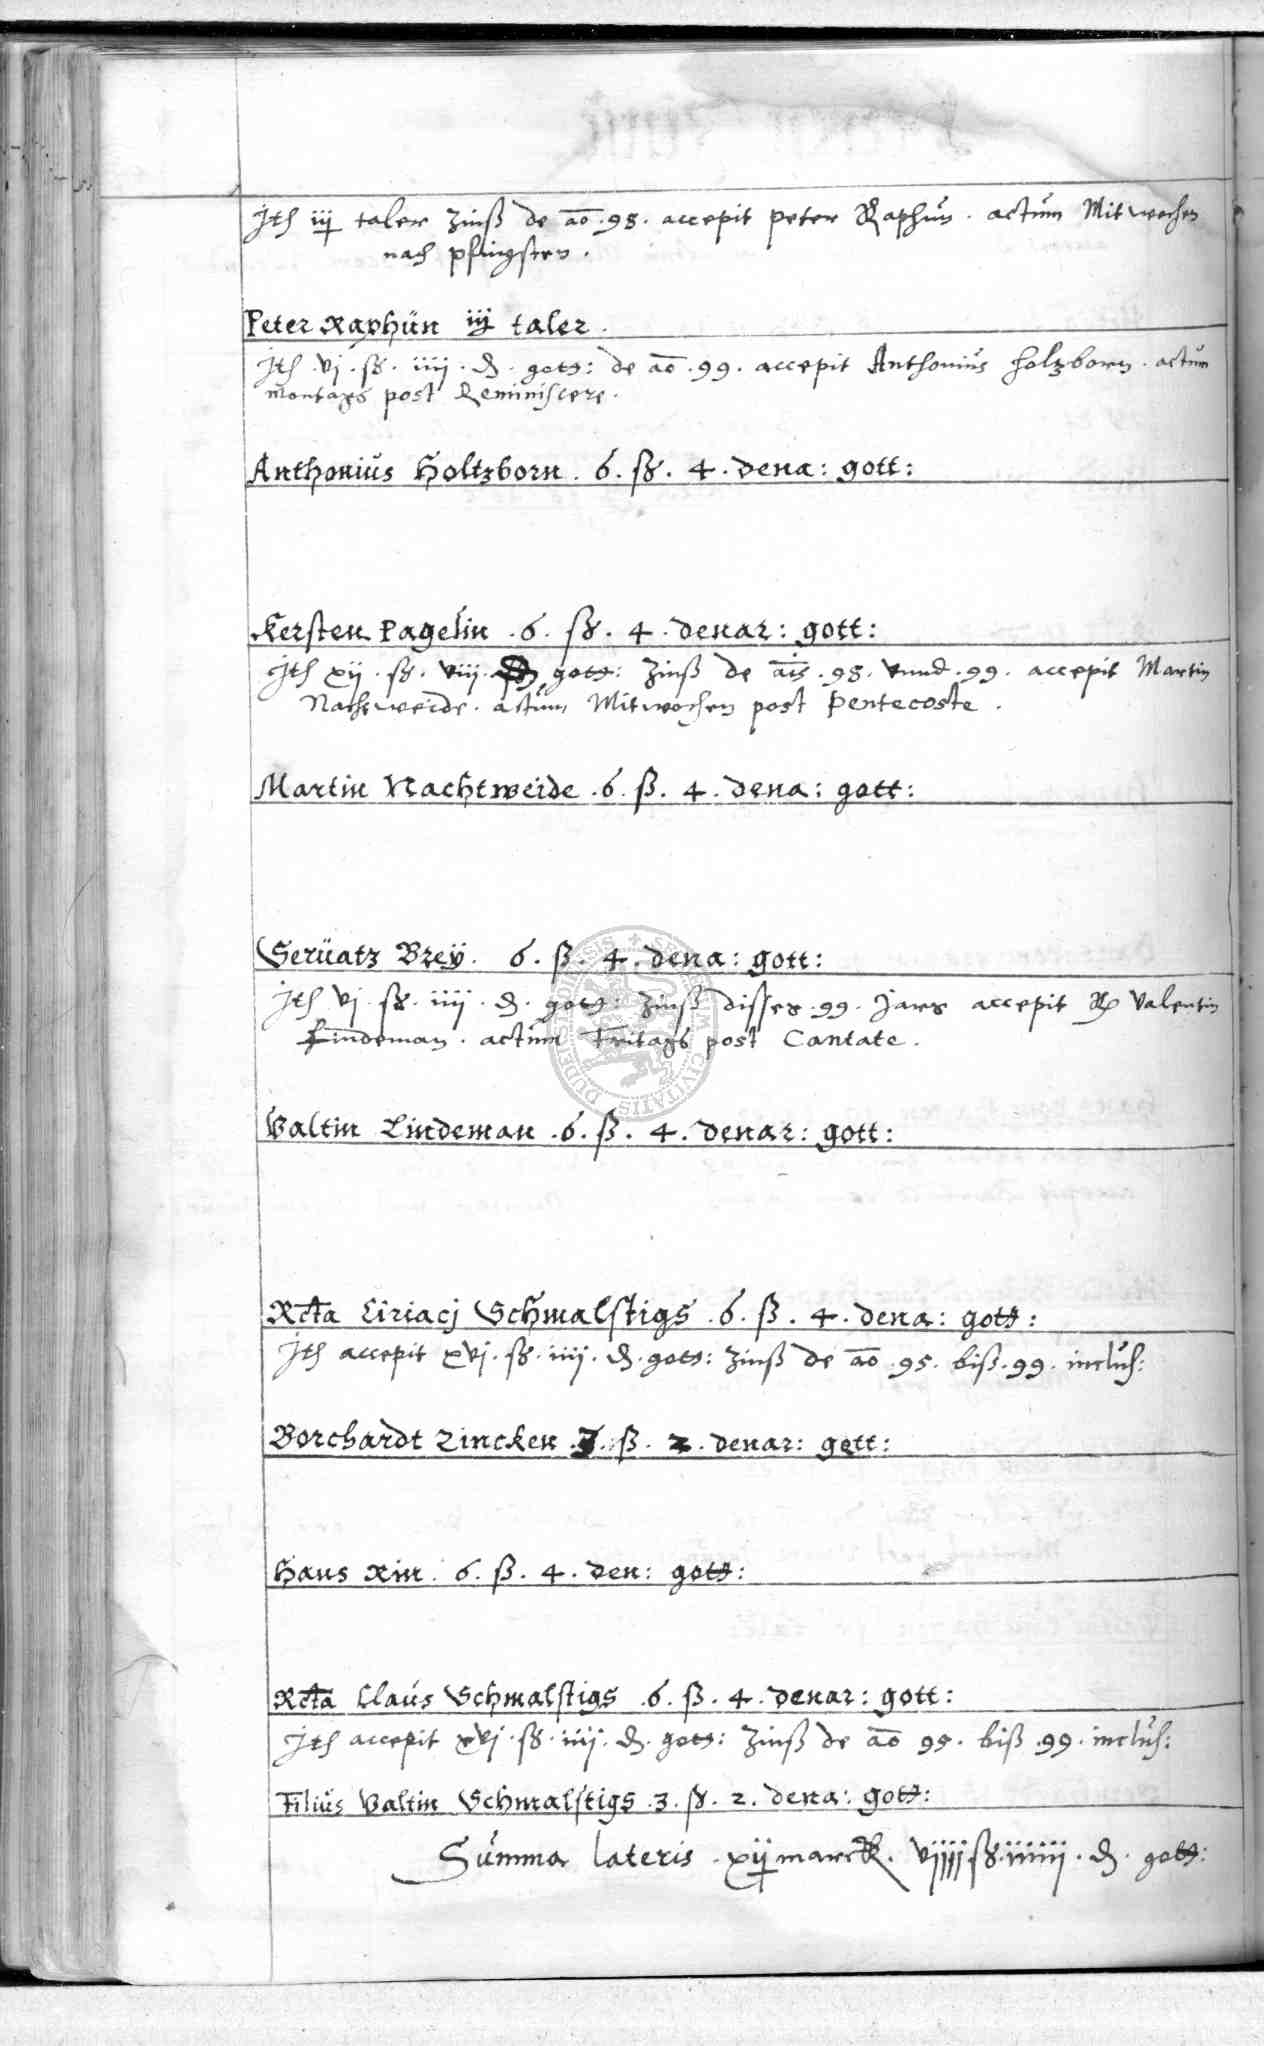 Jth iij taler Zinß de ao . 98 . accepit Peter Raphün . actum Mitwochen
nach pfingsten .
Peter Raphün iij taler .
Jth . vj . ß . iiij . d . gott: de ao . 99 . accepit Anthonius Holzborn . actum
montags post Reminiscere .
Anthonius Holtzborn . 6 . ß . 4 . dena : gott :
Kersten Pagelin . 6 . ß . 4 . denar : gott :
Jth xij . ß . viij . gott: Zinß de ais . 98 . vnnd . 99 . accepit Martin
Nachtweide . actum Mitwochen post Pentecoste .
Martin Nachtweide . 6 . ß . 4 . dena : gott :
Serüatz Breÿ . 6 . ß . 4 . dena : gott :
Jth vj . ß . iiij . d . gott: Zinß disses . 99 . Jars accepit Valentin
Lindeman . actum Fritags post Cantate .
Valtin Lindeman . 6 . ß . 4 . denar : gott :
Rcta Ciriacj Schmalstigs . 6 . ß . 4 . dena : gott :
Jth accepit xvj . ß . iiij . d . gott: Zinß de ao . 95 . biß . 99 . inclus :
Borchardt Zincken . 3 . ß . 2 . denar : gott :
Hans Rin . 6 . ß . 4 . den : gott :
Rcta Claus Schmalstigs . 6 . ß . 4 . denar : gott :
Jth accepit xvj . ß . iiij . d . gott: Zinß de ao 95 . biß . 99 . inclus :
Filius Valtin Schmalstigs . 3 . ß . 2 . dena : gott :
Summa lateris . xij marck . viiij ß . iiiiij . d . gott :